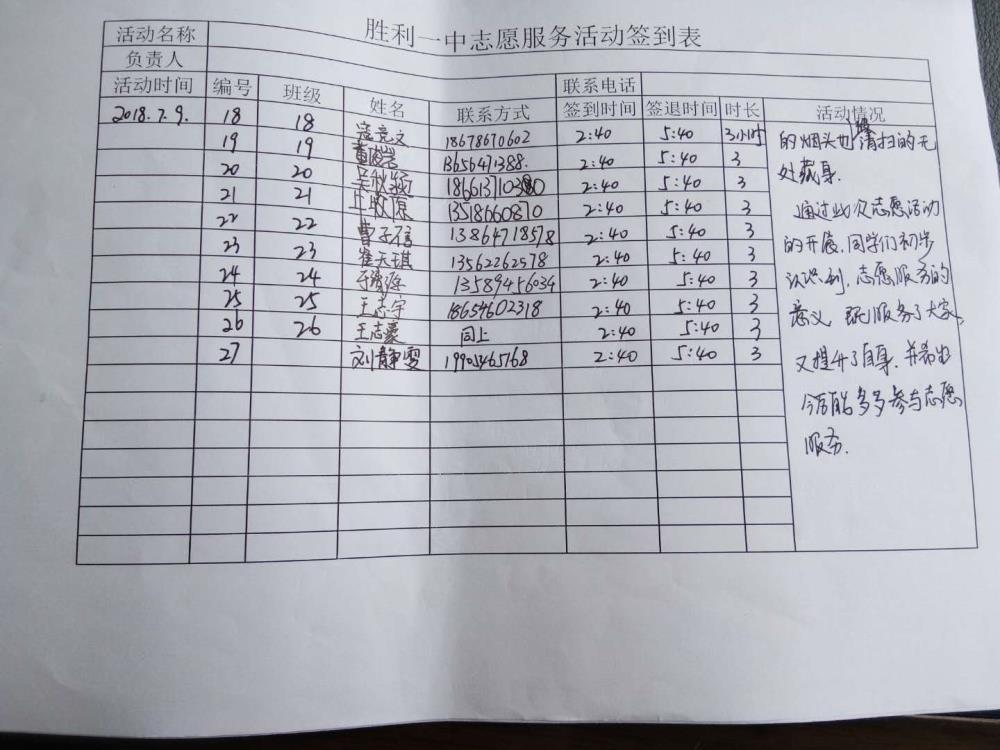 胜利一中志愿服务活动签到表
活动名称
负责人 联系电话
活动时间 编号 班级 姓名 联系方式 签到时间 签退时间 时长 活动情况
2018.7.9. 18 18 18678670602 2:40 5:40 3小时
19 19 13656471388. 2:40 5:40 3
20 20 2:40 5:40 3
21 21 13518660870 2:40 5:40 3
22 22 曹子言 13864718578 2:40 5:40 3
23 23 崔天琪 13562262578 2:40 5:40 3
24 24 13589456034 2:40 5:40 3
25 25 王志宇 18654602318 2:40 5:40 3
26 26 王志豪 同上 2:40 5:40 3
27 刘静雯 19905465768 2:40 5:40 3
的烟头也被清扫的无
处藏身.
通过此次志愿活动
的开展,同学们初步
认识到,志愿服务的
意义,既服务了大家,
又提升了自身.并希望
今后能多多参与志愿
服务.